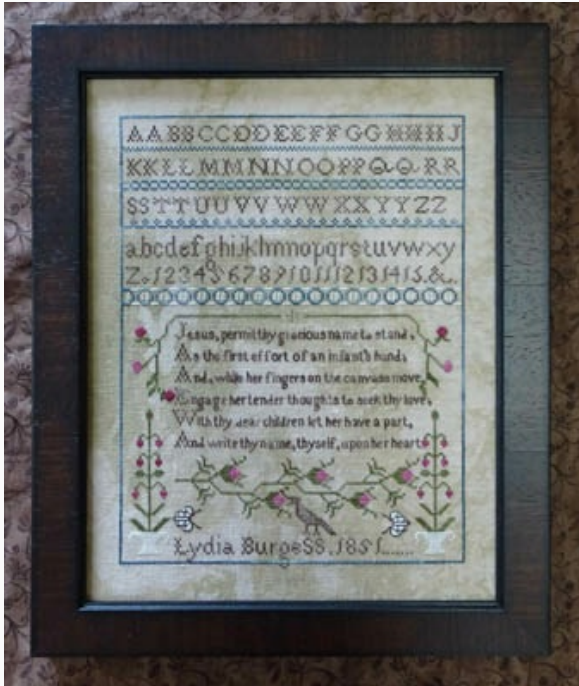 A A B B C C D D E E F F G G H H H J
K K L L M M N N O O P P Q Q R R
S S T T U U V V W W X X Y Y Z Z
a b c d e f g h i j k l m n o p q r s t u v w x y
Z. 1 2 3 4 5 6 7 8 9 10 11 12 13 14 15. &..
Jesus, permit thy gracious name to stand,
As the first effort of an infant's hand;
And, while her fingers on the canvass move,
Engage her tender thoughts to seek thy love,
With thy dear children let her have a part,
And write thy name, thyself, upon her heart.
Lydia Burgess. 1851......